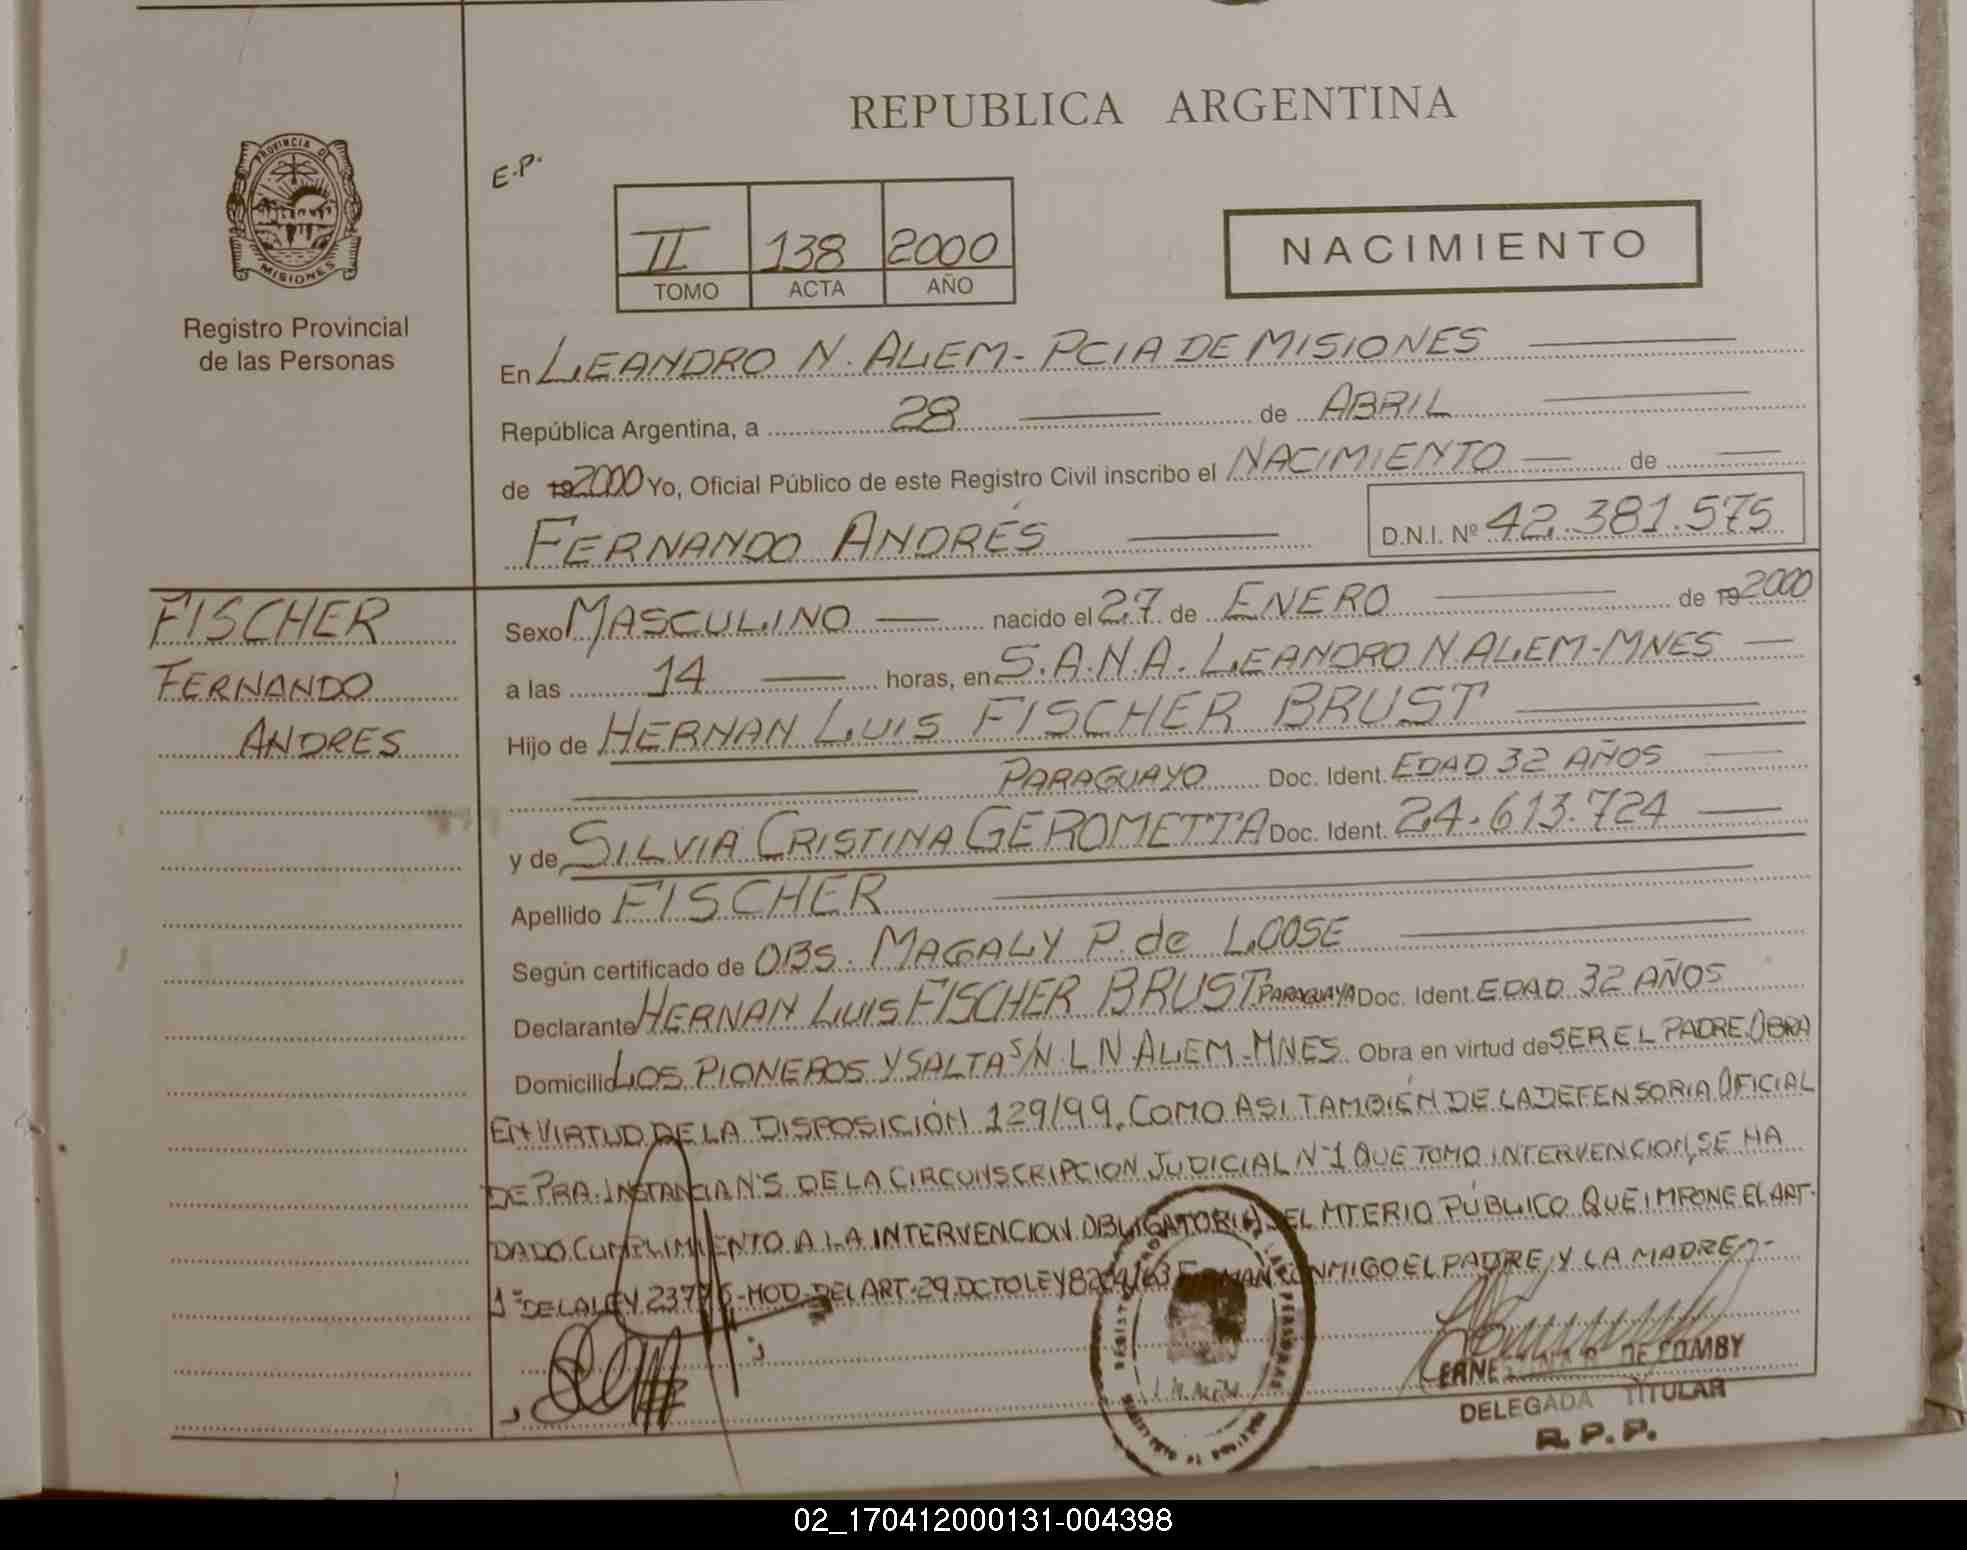 REPUBLICA ARGENTINA
PROVINCIA DE
MISIONES
Registro Provincial
de las Personas
E.P.
II 138 2000
TOMO ACTA AÑO
NACIMIENTO
En LEANDRO N. ALEM - PCIA DE MISIONES
República Argentina, a 28 de ABRIL
de 192000 Yo, Oficial Público de este Registro Civil inscribo el NACIMIENTO de
FERNANDO ANDRÉS D.N.I. Nº 42.381.575
FISCHER
FERNANDO
ANDRES
Sexo MASCULINO nacido el 27 de ENERO de 192000
a las 14 horas, en S.A.N.A. LEANDRO N ALEM-MNES
Hijo de HERNAN LUIS FISCHER BRUST
PARAGUAYO Doc. Ident. EDAD 32 AÑOS
y de SILVIA CRISTINA GEROMETTA Doc. Ident. 24.613.724
Apellido FISCHER
Según certificado de OBS. MAGALY P. de LOOSE
Declarante HERNAN LUIS FISCHER BRUST PARAGUAYA Doc. Ident. EDAD 32 AÑOS
Domicilio LOS PIONEROS Y SALTA S/N. L N. ALEM-MNES. Obra en virtud de SER EL PADRE. OBRA
EN VIRTUD DE LA DISPOSICIÓN 129/99. COMO ASI TAMBIÉN DE LA DEFENSORIA OFICIAL
DE PRA. INSTANCIA N'5 DE LA CIRCUNSCRIPCION JUDICIAL Nº1 QUE TOMO INTERVENCION, SE HA
DADO CUMPLIMIENTO A LA INTERVENCION OBLIGATORIA DEL MTERIO PÚBLICO QUE IMPONE EL ART.
1º DE LA LEY 23776-MOD-DEL ART-29.DCTO LEY 8204/63 FIRMAN CONMIGO EL PADRE Y LA MADRE
L.N. ALEM
DE COMBY
DELEGADA TITULAR
R.P.P.
02_170412000131-004398